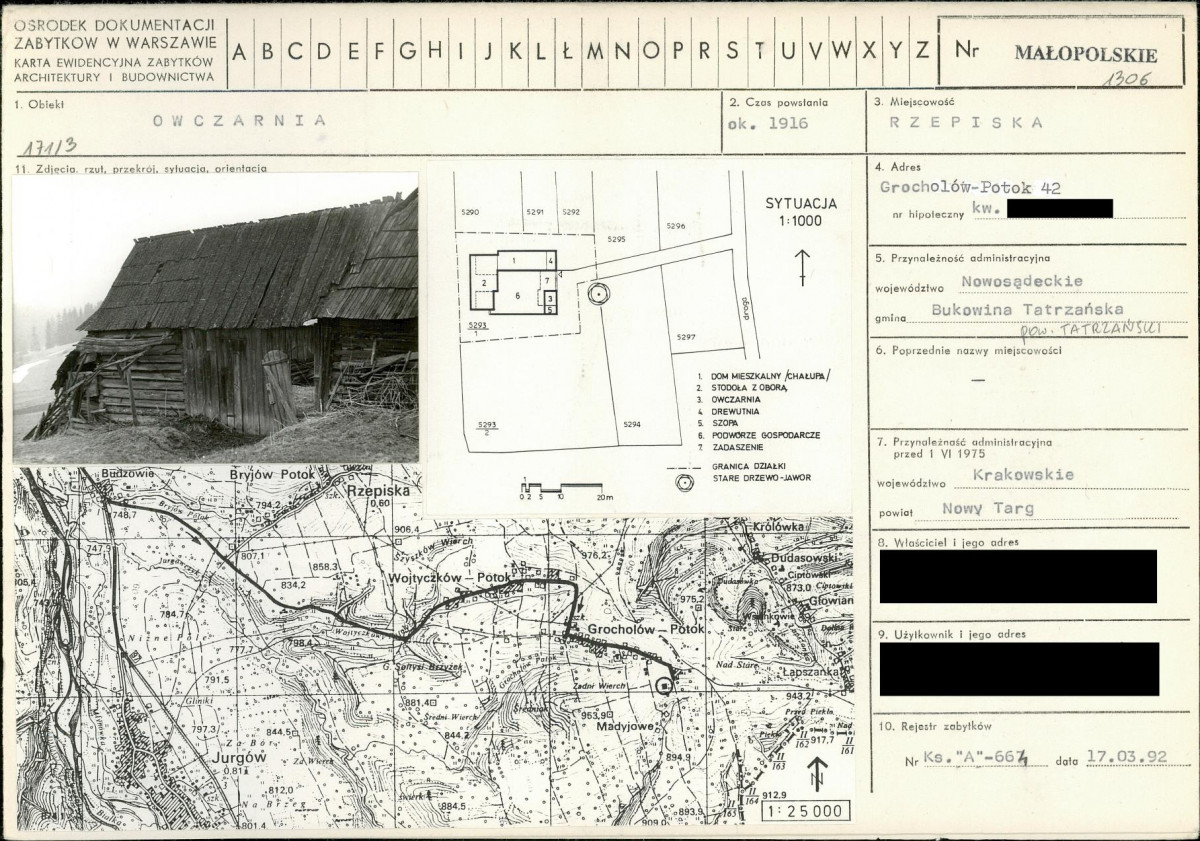 OŚRODEK DOKUMENTACJI
ZABYTKÓW W WARSZAWIE
KARTA EWIDENCYJNA ZABYTKÓW
ARCHITEKTURY I BUDOWNICTWA
A B C D E F G H I J K L Ł M N O P R S T U V W X Y Z
Nr
MAŁOPOLSKIE
1306
1. Obiekt
OWCZARNIA
171/3
2. Czas powstania
ok. 1916
3. Miejscowość
RZEPISKA
11. Zdjęcia, rzut, przekrój, sytuacja, orientacja
4. Adres
Grocholów-Potok 42
nr hipoteczny kw.
5. Przynależność administracyjna
województwo Nowosądeckie
gmina Bukowina Tatrzańska
pow. TATRZAŃSKI
6. Poprzednie nazwy miejscowości
—
7. Przynależność administracyjna
przed 1 VI 1975
województwo Krakowskie
powiat Nowy Targ
8. Właściciel i jego adres
9. Użytkownik i jego adres
10. Rejestr zabytków
Nr Ks."A"-667 data 17.03.92
SYTUACJA
1:1000
5290
5291
5292
5295
5296
5297
5294
5293
1
5293
2
droga
1
2
3
4
5
6
7
1. DOM MIESZKALNY /CHAŁUPA/
2. STODOŁA Z OBORĄ
3. OWCZARNIA
4. DREWUTNIA
5. SZOPA
6. PODWÓRZE GOSPODARCZE
7. ZADASZENIE
GRANICA DZIAŁKI
STARE DRZEWO-JAWOR
0 2 5 10 20m
Budzowie
Bryjów Potok
Rzepiska
0,60
748,7
Bryjów Potok
794,2
906,4
747,9
807,1
Szyszków Wierch
858,3
834,2
Wojtyczków-Potok
976,2
Królówka
Dudasowski
Ciptowski
873,0
975,2
784,7
Niżne Pole
777,7
798,4
G. Sołtysi Brzyżek
Grocholów-Potok
Grocholów Potok
Nad Stare
Łapszanka
791,5
Gliniki
881,4
Średni Wierch
Zadni Wierch
953,9
Madyjowe
943,2
Przed Piekło
797,3
Za Bór
844,5
844,2
Jurgów
0,81
Za Wierch
894,9
917,7
812,0
Na Brzeg
884,5
912,9
801,4
893,9
909,0
Białka
II
162
II
161
II
163
II
164
II
165
N
1:25000